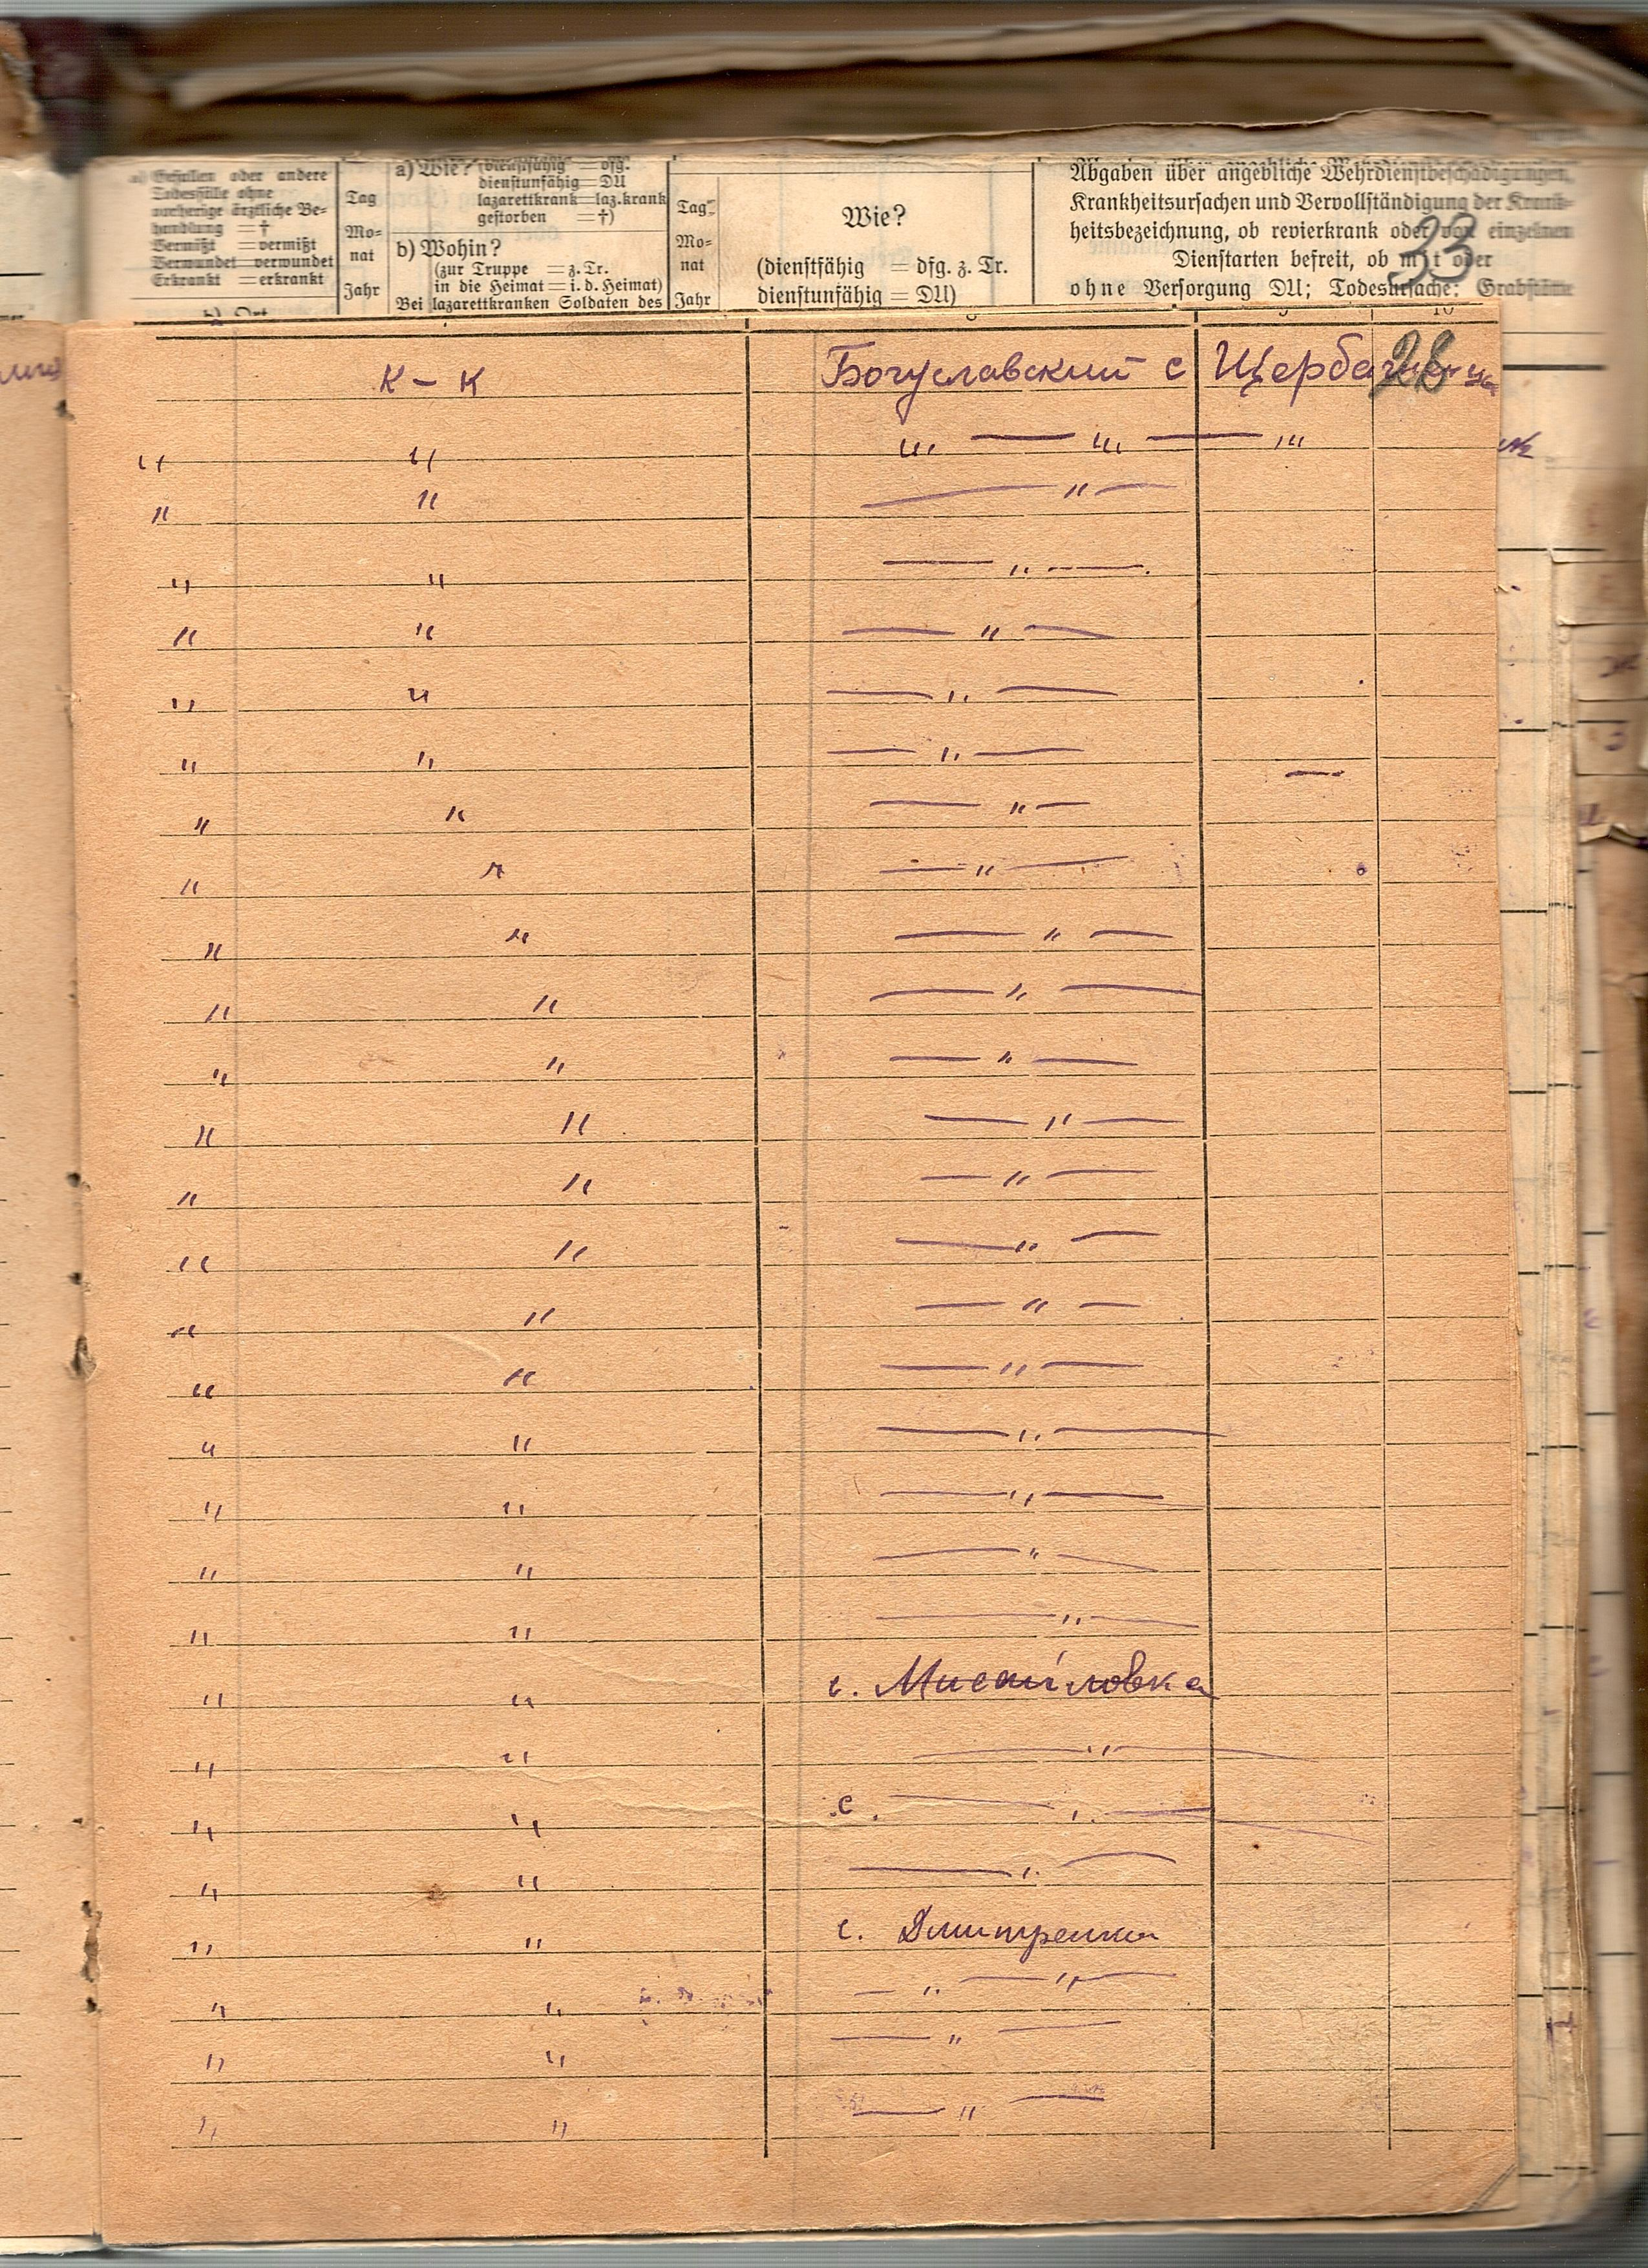 a) Gefallen oder andere
Todesfälle ohne
vorherige ärztliche Be-
handlung = †
Vermißt = vermißt
Verwundet = verwundet
Erkrankt = erkrankt
b) Ort
Tag
Mo-
nat
Jahr
a) Wie? (dienstfähig = dfg.
dienstunfähig = DU
lazarettkrank = laz.krank
gestorben = †)
b) Wohin?
(zur Truppe = z. Tr.
in die Heimat = i. d. Heimat)
Bei lazarettkranken Soldaten des
Tag
Mo-
nat
Jahr
Wie?
(dienstfähig = dfg. z. Tr.
dienstunfähig = DU)
Abgaben über angebliche Wehrdienstbeschädigungen,
Krankheitsursachen und Vervollständigung der Krank-
heitsbezeichnung, ob revierkrank oder von einzelnen
Dienstarten befreit, ob mit oder
ohne Versorgung DU; Todesursache; Grabstätte
33
10
28
К – К Богуславский с Щербаченци
" " " — " — "
" " — " —
" " — " —
" " — " —
" " — " —
" " — " —
" " — " —
" " — " —
" " — " —
" " — " —
" " — " —
" " — " —
" " — " —
" " — " —
" " — " —
" " — " —
" " — " —
" " — " —
" " — " —
" " — " —
" " с. Мисайловка
" " — " —
" " с. — " —
" " — " —
" " с. Дмитренки
" " — " — " —
" " — " —
" " — " —